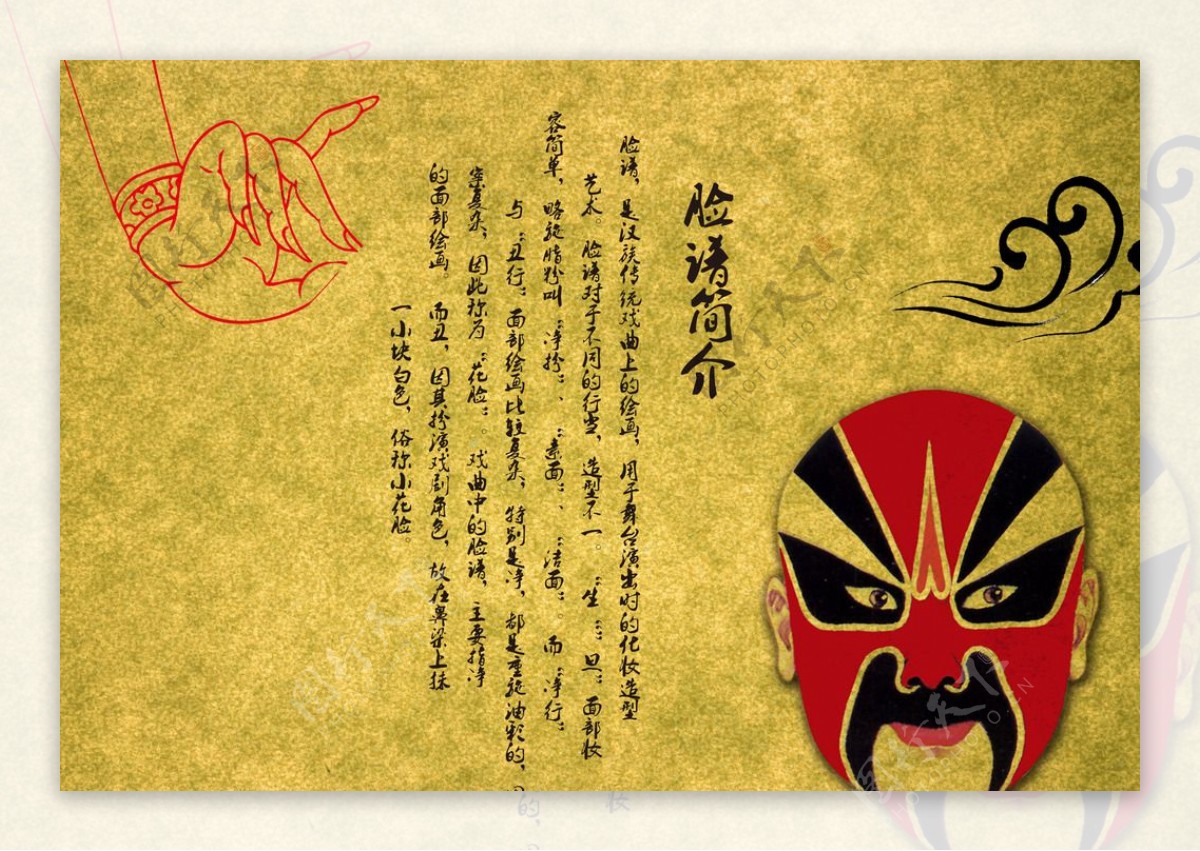 脸谱简介
脸谱，是汉族传统戏曲上的绘画，用于舞台演出时的化妆造型
艺术。脸谱对于不同的行当，造型不一。“生”、“旦”面部妆
容简单，略施脂粉叫“净扮”、“素面”、“洁面”。而“净行”
与“丑行”面部绘画比较复杂，特别是净，都是重施油彩的，
案复杂，因此称为“花脸”。戏曲中的脸谱，主要指净
的面部绘画。而丑，因其扮演戏剧角色，故在鼻梁上抹
一小块白色，俗称小花脸。